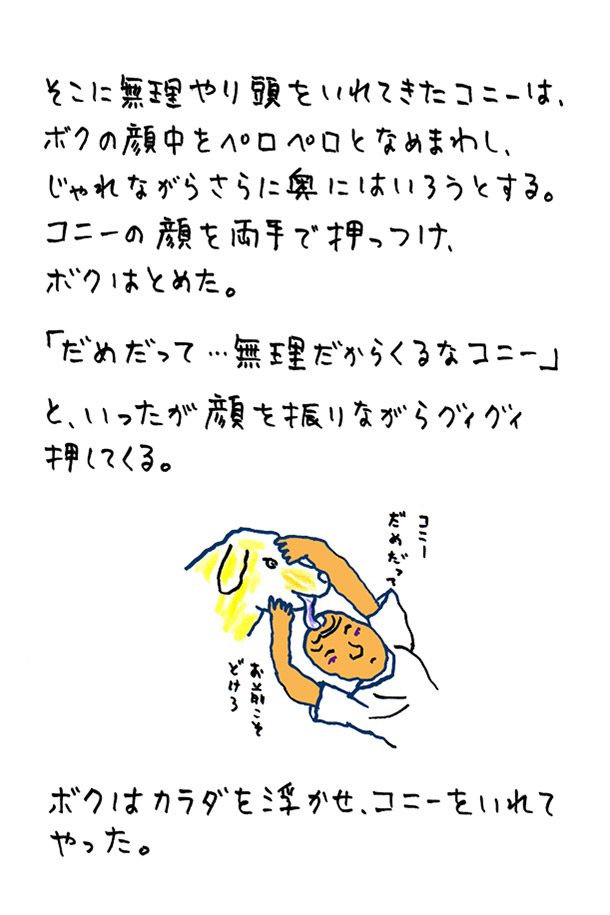 そこに無理やり頭をいれてきたコニーは、
ボクの顔中をペロペロとなめまわし、
じゃれながらさらに奥にはいろうとする。
コニーの顔を両手で押っつけ、
ボクはとめた。
「だめだって…無理だからくるなコニー」
と、いったが顔を振りながらグイグイ
押してくる。
コニー
だめだって
お前こそ
どけろ
ボクはカラダを浮かせ、コニーをいれて
やった。